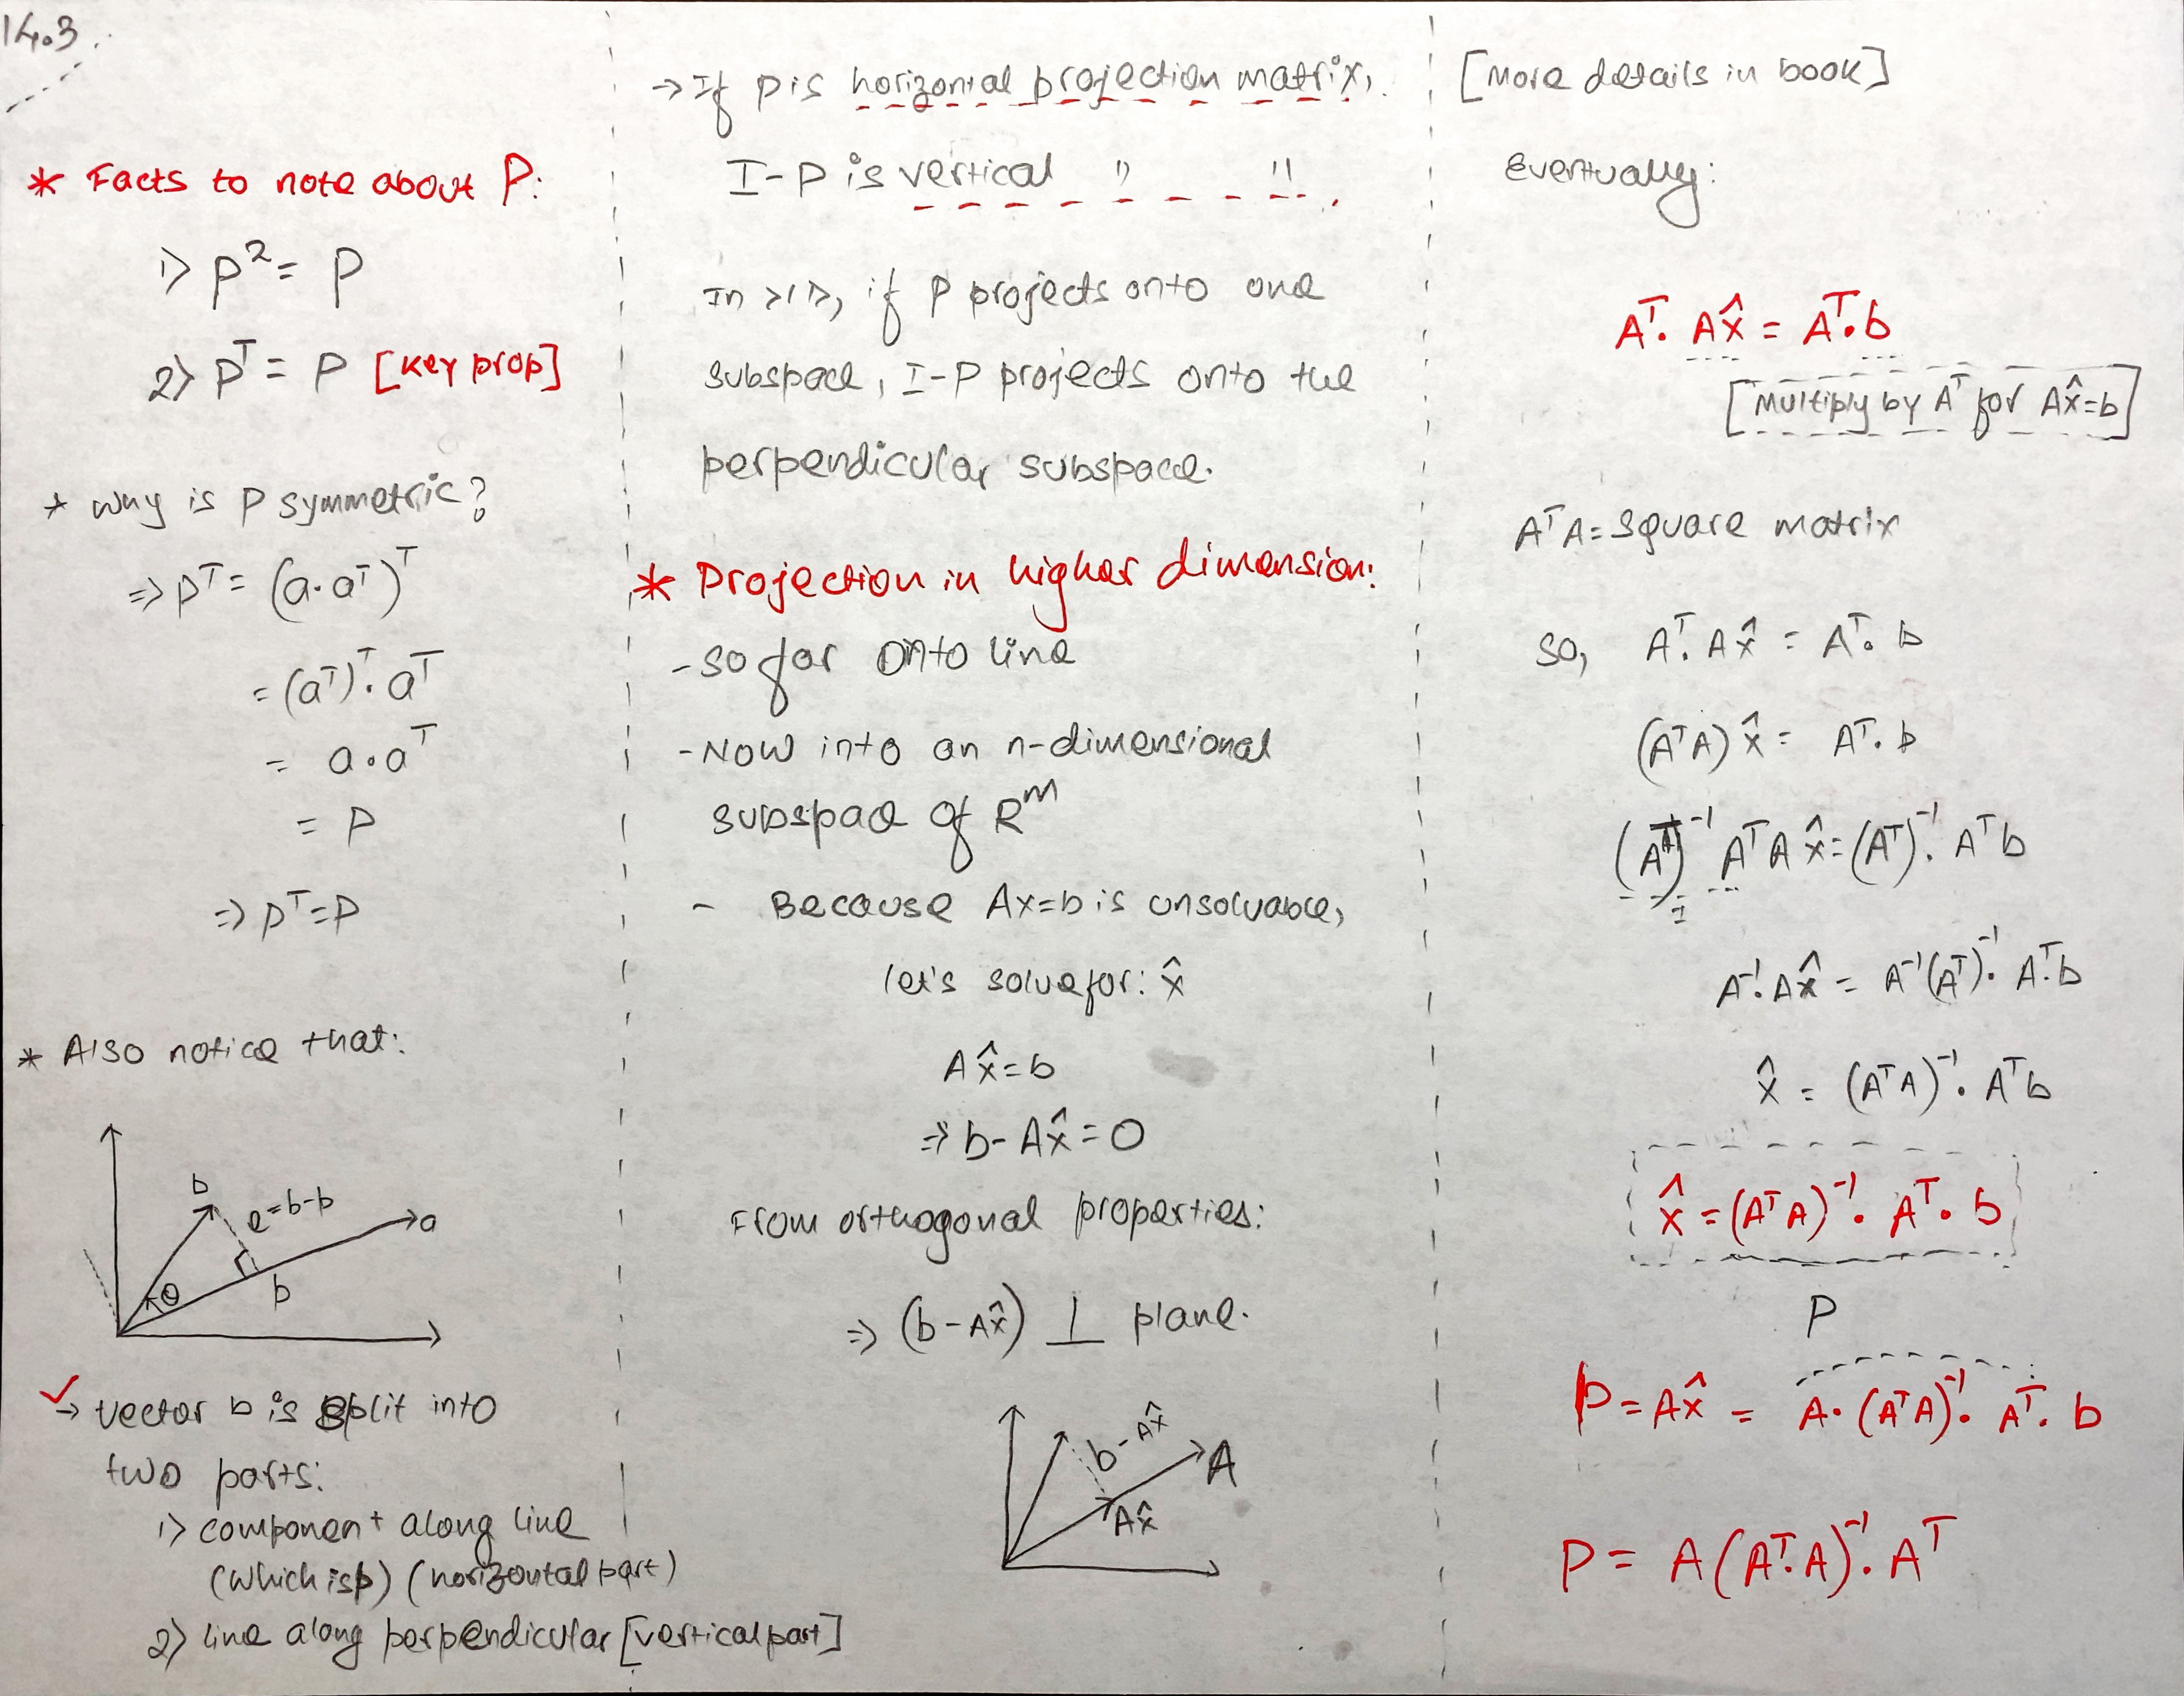 14.3.
* Facts to note about P:
1> P² = P
2> Pᵀ = P [key prop]
* why is P symmetric?
=> Pᵀ = (a·aᵀ)ᵀ
= (aᵀ)ᵀ·aᵀ
= a·aᵀ
= P
=> Pᵀ=P
* Also notice that:
b
e=b-p
a
θ
p
✓
→ vector b is split into
two parts:
1> component along line
(which is p) (horizontal part)
2> line along perpendicular [vertical part]
→ If P is horizontal projection matrix,
I-P is vertical " "
In >1D, if P projects onto one
subspace, I-P projects onto the
perpendicular subspace.
* Projection in higher dimension:
- so far onto line
- Now into an n-dimensional
subspace of Rᵐ
- Because Ax=b is unsolvable,
let's solve for: x̂
Ax̂=b
=> b-Ax̂=0
From orthogonal properties:
=> (b-Ax̂) ⊥ plane.
b-Ax̂
A
Ax̂
[More details in book]
Eventually:
Aᵀ·Ax̂ = Aᵀ·b
[Multiply by Aᵀ for Ax̂=b]
AᵀA=square matrix
So, Aᵀ·Ax̂ = Aᵀ·b
(AᵀA)x̂ = Aᵀ·b
(Aᵀ)⁻¹ AᵀA x̂=(Aᵀ)⁻¹·Aᵀb
I
A⁻¹·Ax̂ = A⁻¹(Aᵀ)⁻¹·Aᵀ·b
x̂ = (AᵀA)⁻¹·Aᵀb
x̂ = (AᵀA)⁻¹·Aᵀ·b
P
p = Ax̂ = A·(AᵀA)⁻¹·Aᵀ·b
P = A(Aᵀ·A)⁻¹·Aᵀ